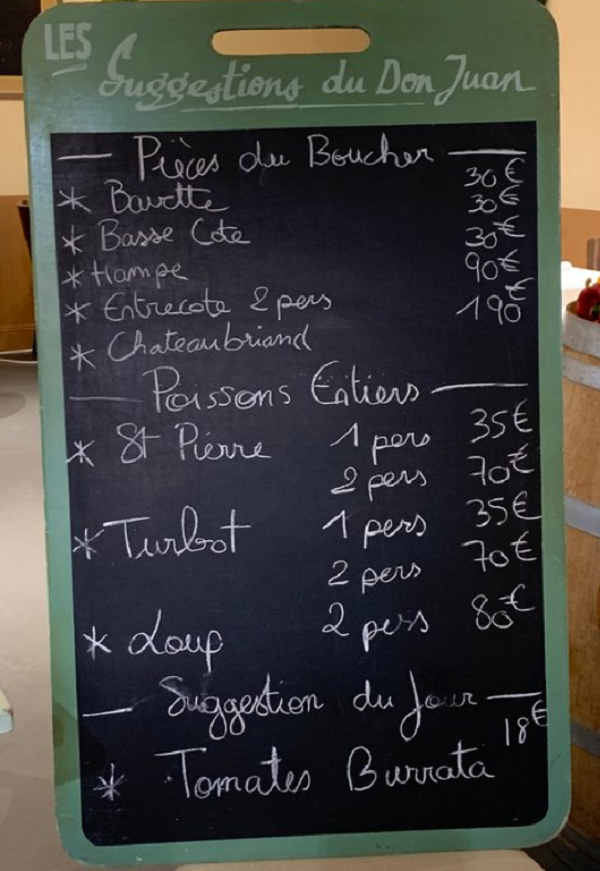 LES
Suggestions du Don Juan
Pièces du Boucher
* Bavette 30€
* Basse Cote 30€
* Hampe 30€
* Entrecote 2 pers 90€
* Chateaubriand 190€
Poissons Entiers
* St Pierre 1 pers 35€
2 pers 70€
* Turbot 1 pers 35€
2 pers 70€
* Loup 2 pers 80€
Suggestion du Jour
* Tomates Burrata 18€